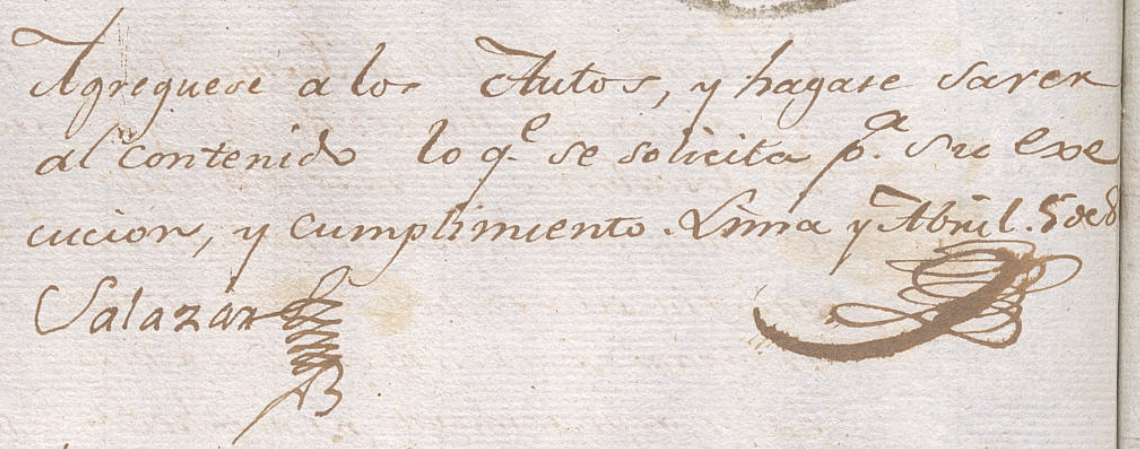 Agreguese a los Autos, y hagase saver
al contenido lo q.e se solicita p.a su exe
cucion, y cumplimiento. Lima y Abril. 5 de
Salazar